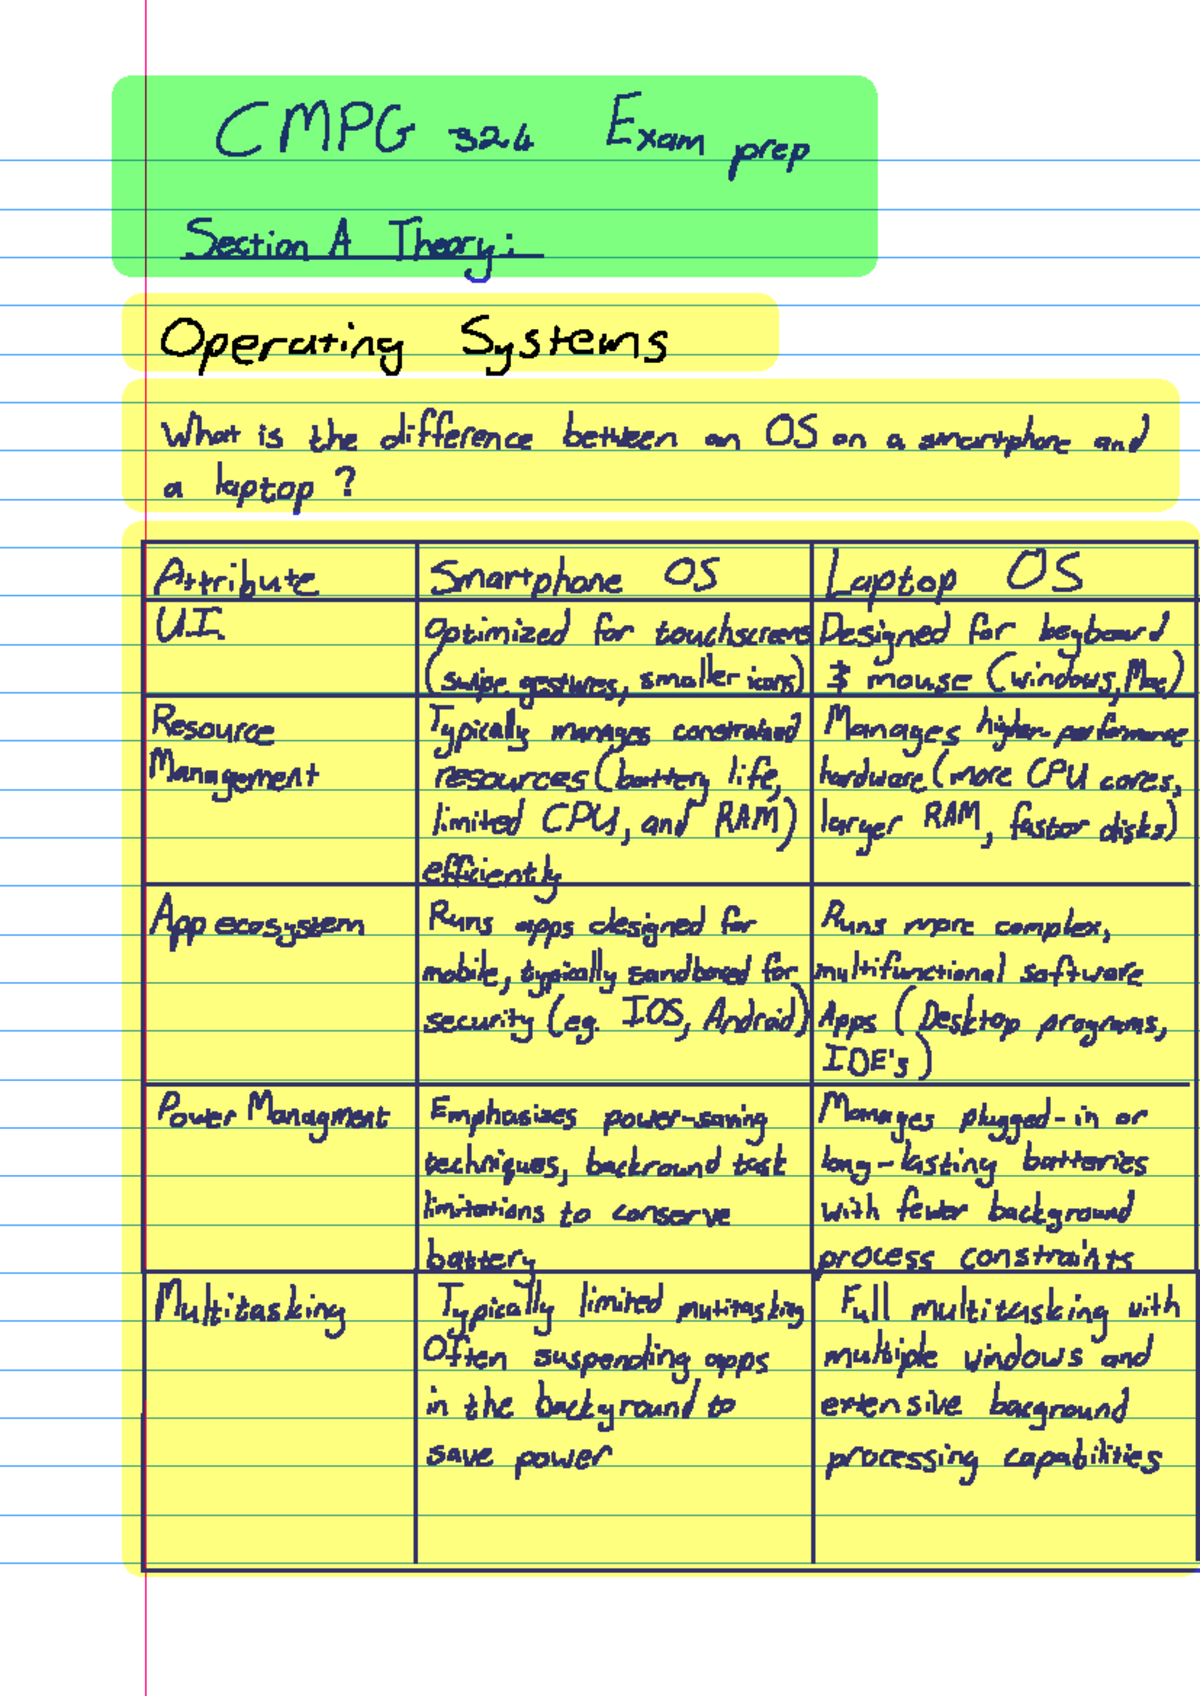 CMPG 324 Exam prep
Section A Theory:
Operating Systems
What is the difference between an OS on a smartphone and
a laptop?
Attribute
Smartphone OS
Laptop OS
U.I.
Optimized for touchscreens
(swipe gestures, smaller icons)
Designed for keyboard
& mouse (windows, Mac)
Resource
Management
Typically manages constrained
resources (battery life,
limited CPU, and RAM)
efficiently
Manages higher-performance
hardware (more CPU cores,
larger RAM, faster disks)
App ecosystem
Runs apps designed for
mobile, typically sandboxed for
security (eg. IOS, Android)
Runs more complex,
multifunctional software
Apps (Desktop programs,
IDE's)
Power Managment
Emphasizes power-saving
techniques, backround task
limitations to conserve
battery
Manages plugged-in or
long-lasting batteries
with fewer background
process constraints
Multitasking
Typically limited mutitasking
Often suspending apps
in the background to
save power
Full multitasking with
multiple windows and
extensive bacground
processing capabilities